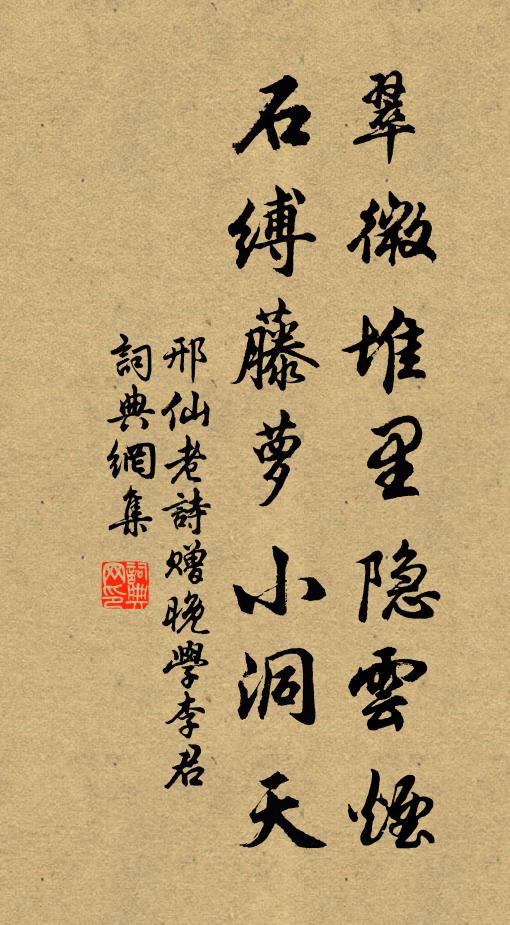 翠微堆里隐雲煙
石縛藤萝小洞天
邢仙老詩贈晚學李君
詞典網集
詞典网印